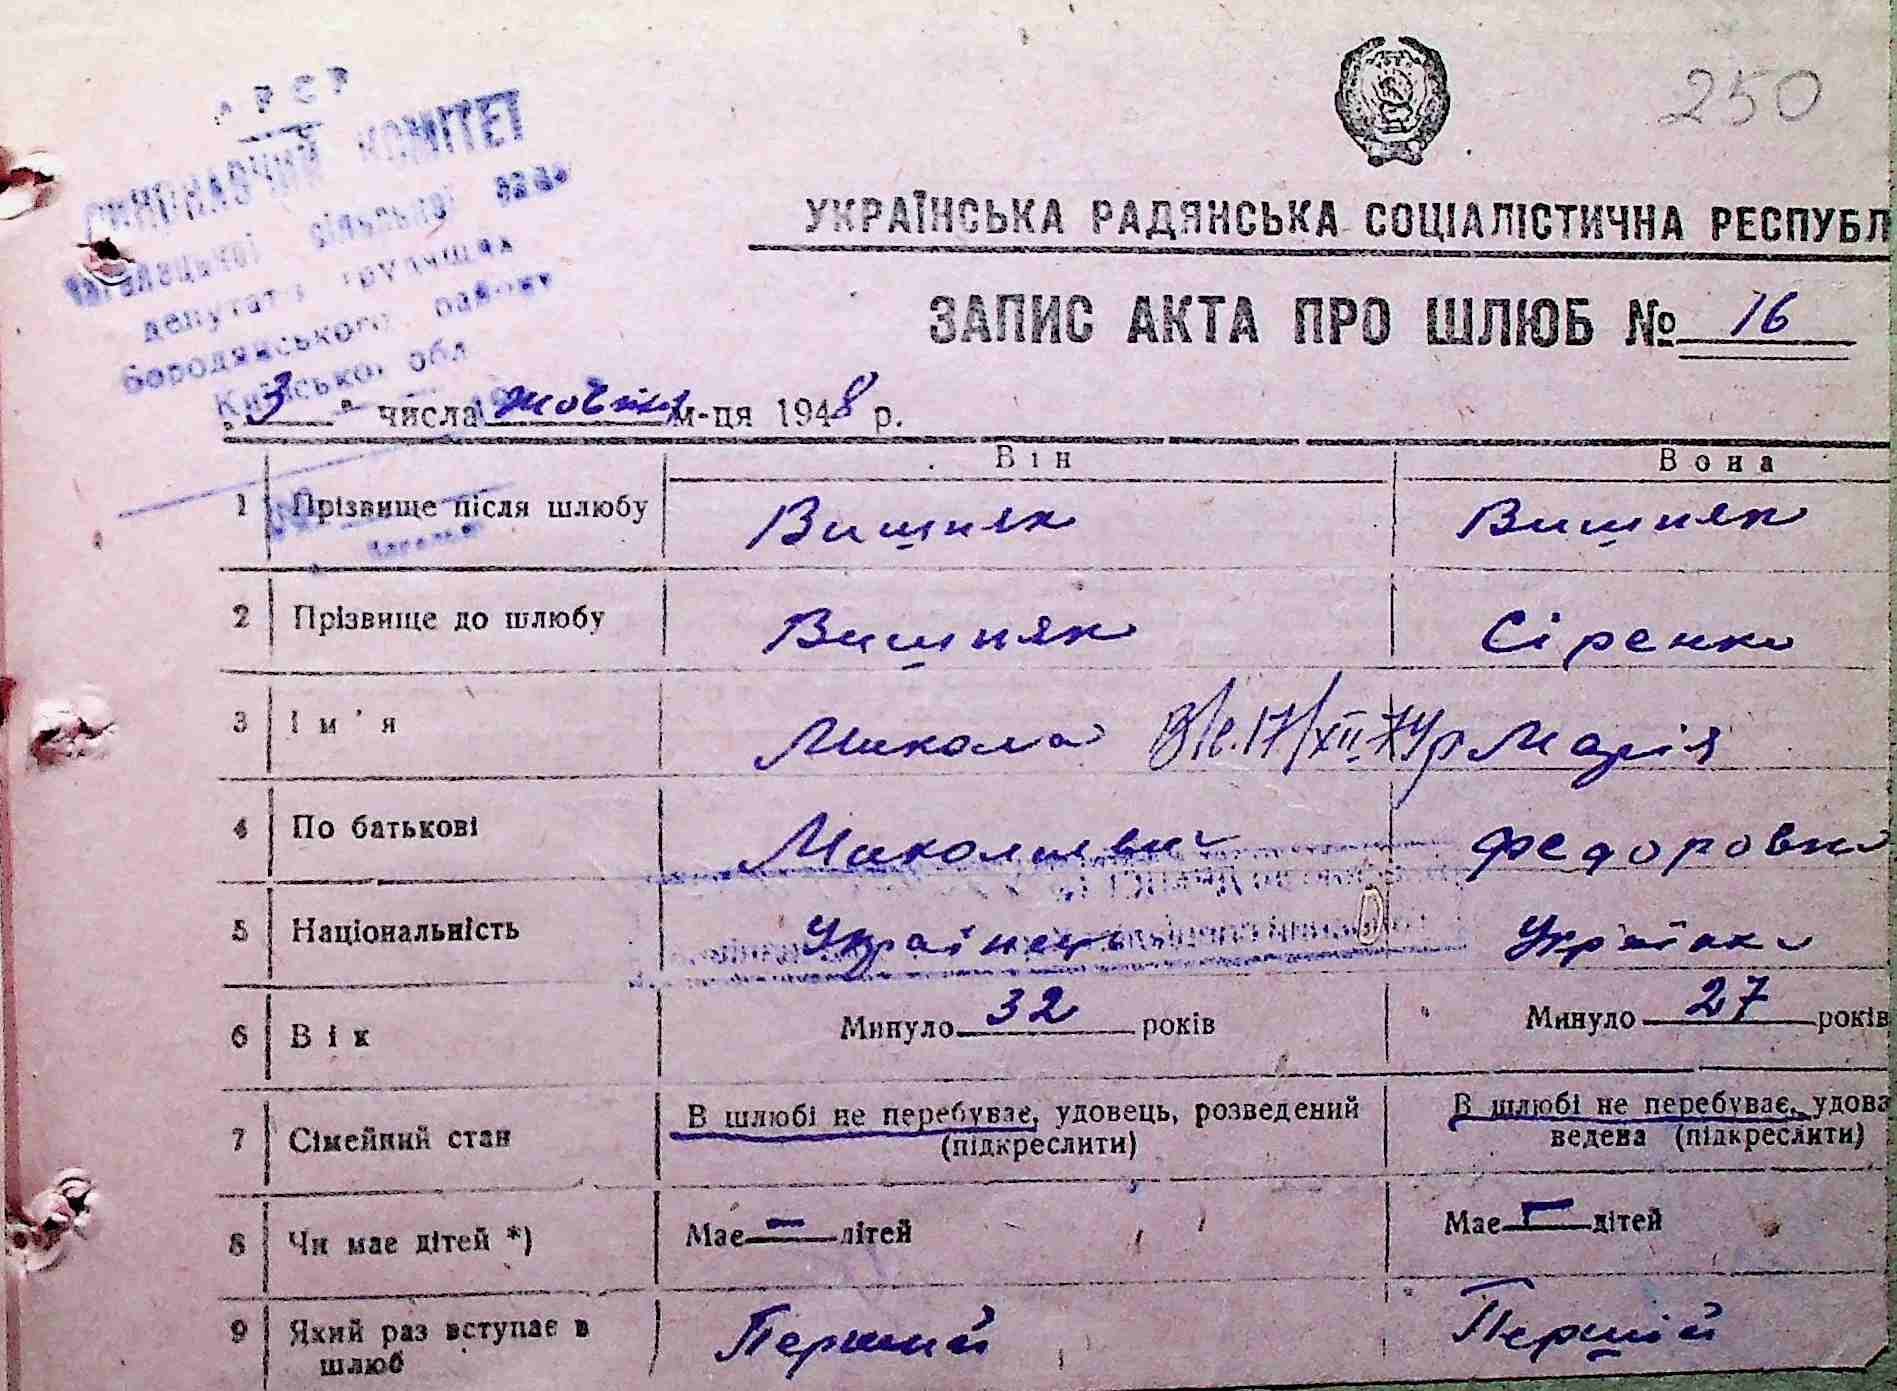 250
ВИКОНАВЧИЙ КОМІТЕТ
сільської ради
депутатів трудящих
Бородянського району
Київської обл
УКРАЇНСЬКА РАДЯНСЬКА СОЦІАЛІСТИЧНА РЕСПУБЛ
ЗАПИС АКТА ПРО ШЛЮБ № 16
"3" числа жовтня м-ця 1948 р.
Він Вона
1 Прізвище після шлюбу Вишняк Вишняк
2 Прізвище до шлюбу Вишняк Сіренко
3 Ім'я Микола 17/XII-74р Марія
4 По батькові Миколаевич Федоровна
5 Національність Українець Українка
6 Вік Минуло 32 років Минуло 27 років
7 Сімейний стан В шлюбі не перебуває, удовець, розведений В шлюбі не перебуває, удова
(підкреслити) ведена (підкреслити)
8 Чи має дітей *) Має — дітей Має — дітей
9 Який раз вступає в Перший Перший
шлюб